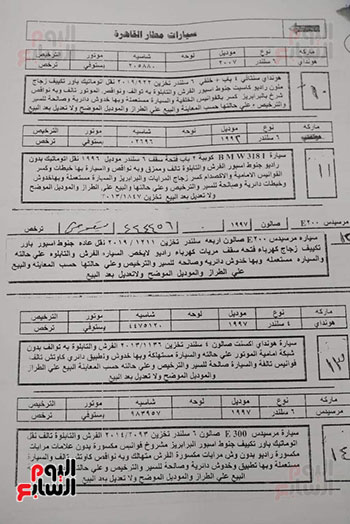 سيارات مطار القاهرة
ماركه نوع موديل لوحه شاسيه موتور الترخيص
هونداي ٦ سلندر ٢٠٠٧ ٢٠٥٨٨٠ يستوفي ترخص
هونداي سنتافي ٤ باب + خلفي ٦ سلندر تخزين ٢٠١٩/٢٢٢ نقل اتوماتيك باور تكييف زجاج
منون راديو كاسيت جنوط اسبور الفرش والتابلوة به توالف ونواقص الموتور تالف وبه نواقص
شرخ بالبرابريز كسر بالفوانيس الخلفية والسيارة مستعملة وبها خدوش دائرية وصالحة للسير
والترخيص وعلي حالتها حسب المعاينة والبيع علي الطراز والموديل الموضح ولا تعديل بعد البيع
١٠
ماركه نوع موديل لوحه شاسيه موتور الترخيص
٦ سلندر ١٩٩٦ ٠٢٦٩٦ يستوفي ترخص
سيارة BMW 318 I كوبية ٢ باب فتحة سقف ٦ سلندر موديل ١٩٩٦ نقل اتوماتيك بدون
راديو جنوط اسبور الفرش والتابلوة تالف وممزق وبه نواقص والسيارة بها خبطات وكسر
الفوانيس الامامية والاكصدام كسر زجاج المرايات والبرابريز والسيارة مستعملة وبها خدوش
وخبطات دائرية وصالحة للسير والترخيص وعلي حالتها والبيع علي الطراز والموديل الموضح
ولا تعديل بعد البيع ٢٠١٣/١٨٤٧
١١
مرسيدس E٢٠٠ صالون ١٩٩٧ ترخص
سيارة مرسيدس E٢٠٠ صالون اربعه سلندر تخزين ٢٠١٩/١٢١١ نقل عاده جنوط اسبور باور
تكييف زجاج كهرباء فتحه سقف مريات كهرباء راديو لايخص السياره الفرش والتابلوه علي حالته
والسياره مستعمله وبها خدوش دائريه وصالحه للسير والترخيص وعلي حالتها حسب المعاينه والبيع
علي الطراز والموديل الموضح ولا تعديل بعد البيع
ماركه نوع موديل لوحه شاسيه موتور الترخيص
هونداي ٤ سلندر ١٩٩٧ ٤٤٧٥١٢٠ يستوفي ترخص
سيارة هونداي اكسنت صالون ٤ سلندر تخزين ٢٠١٣/١١٣٦ الفرش والتابلوة به توالف بدون
شبكة امامية الموتور علي حالته والسيارة مستهلكة وبها خدوش وتطبيق دائري كاوتش تالف
فوانيس تالفة والسيارة صالحة للسير والترخيص وعلي حالته حسب المعاينة البيع علي الطراز
والموديل الموضح ولا تعديل بعد البيع
١٣
ماركه نوع موديل لوحه شاسيه موتور الترخيص
مرسيدس ٦ سلندر ١٩٩٧ ٩٨٣٩٥٧ يستوفي ترخص
سيارة مرسيدس E 300 صالون ٦ سلندر تخزين ٢٠١٤/٢٠٩٣ الفرش والتابلوة تالف نقل
اتوماتيك باور تكييف جنوط اسبور البرابريز مشروخ فوانيس مكسورة بدون علامات مرايات
مكسورة راديو بدون وش مرايات مكسورة الفرش متهالك وبه نواقص كاوتش تالف والسيارة
مستعملة وبها تطبيق وخدوش دائرية وصالحة للسير والترخيص وعلي حالتها حسب المعاينة
البيع علي الطراز والموديل الموضح ولا تعديل بعد البيع
١٤
اليوم السابع
اليوم السابع